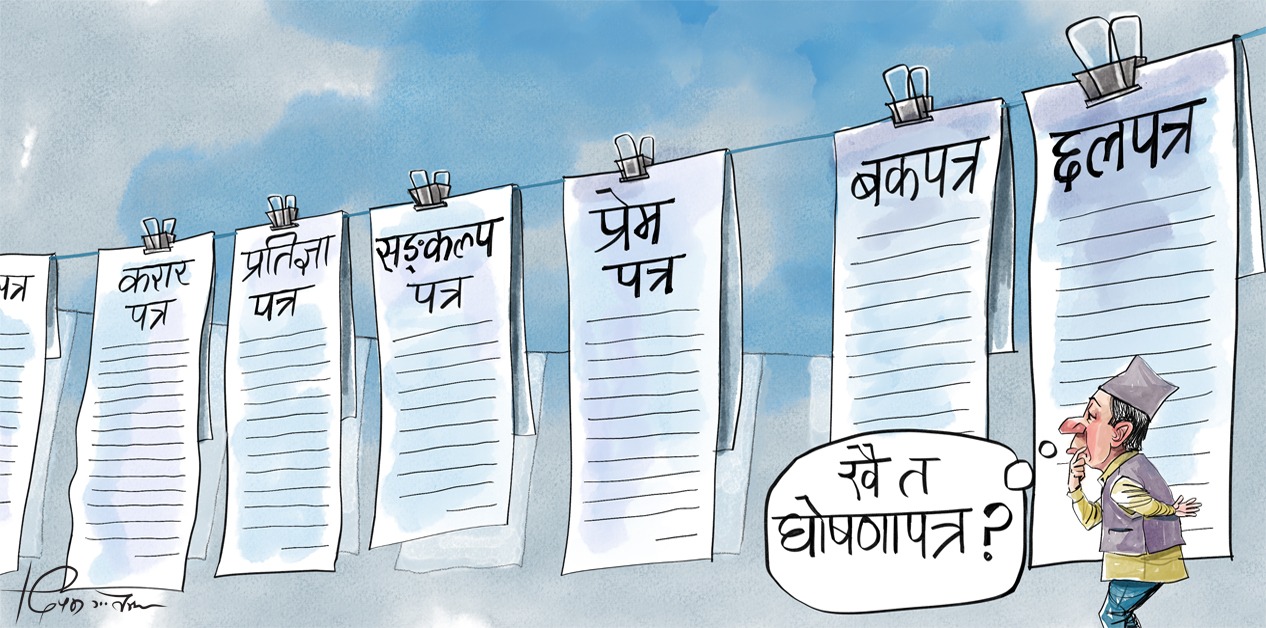 पत्र
करार
पत्र
प्रतिज्ञा
पत्र
सङ्कल्प
पत्र
प्रेम
पत्र
बकपत्र
छलपत्र
खै त
घोषणापत्र?